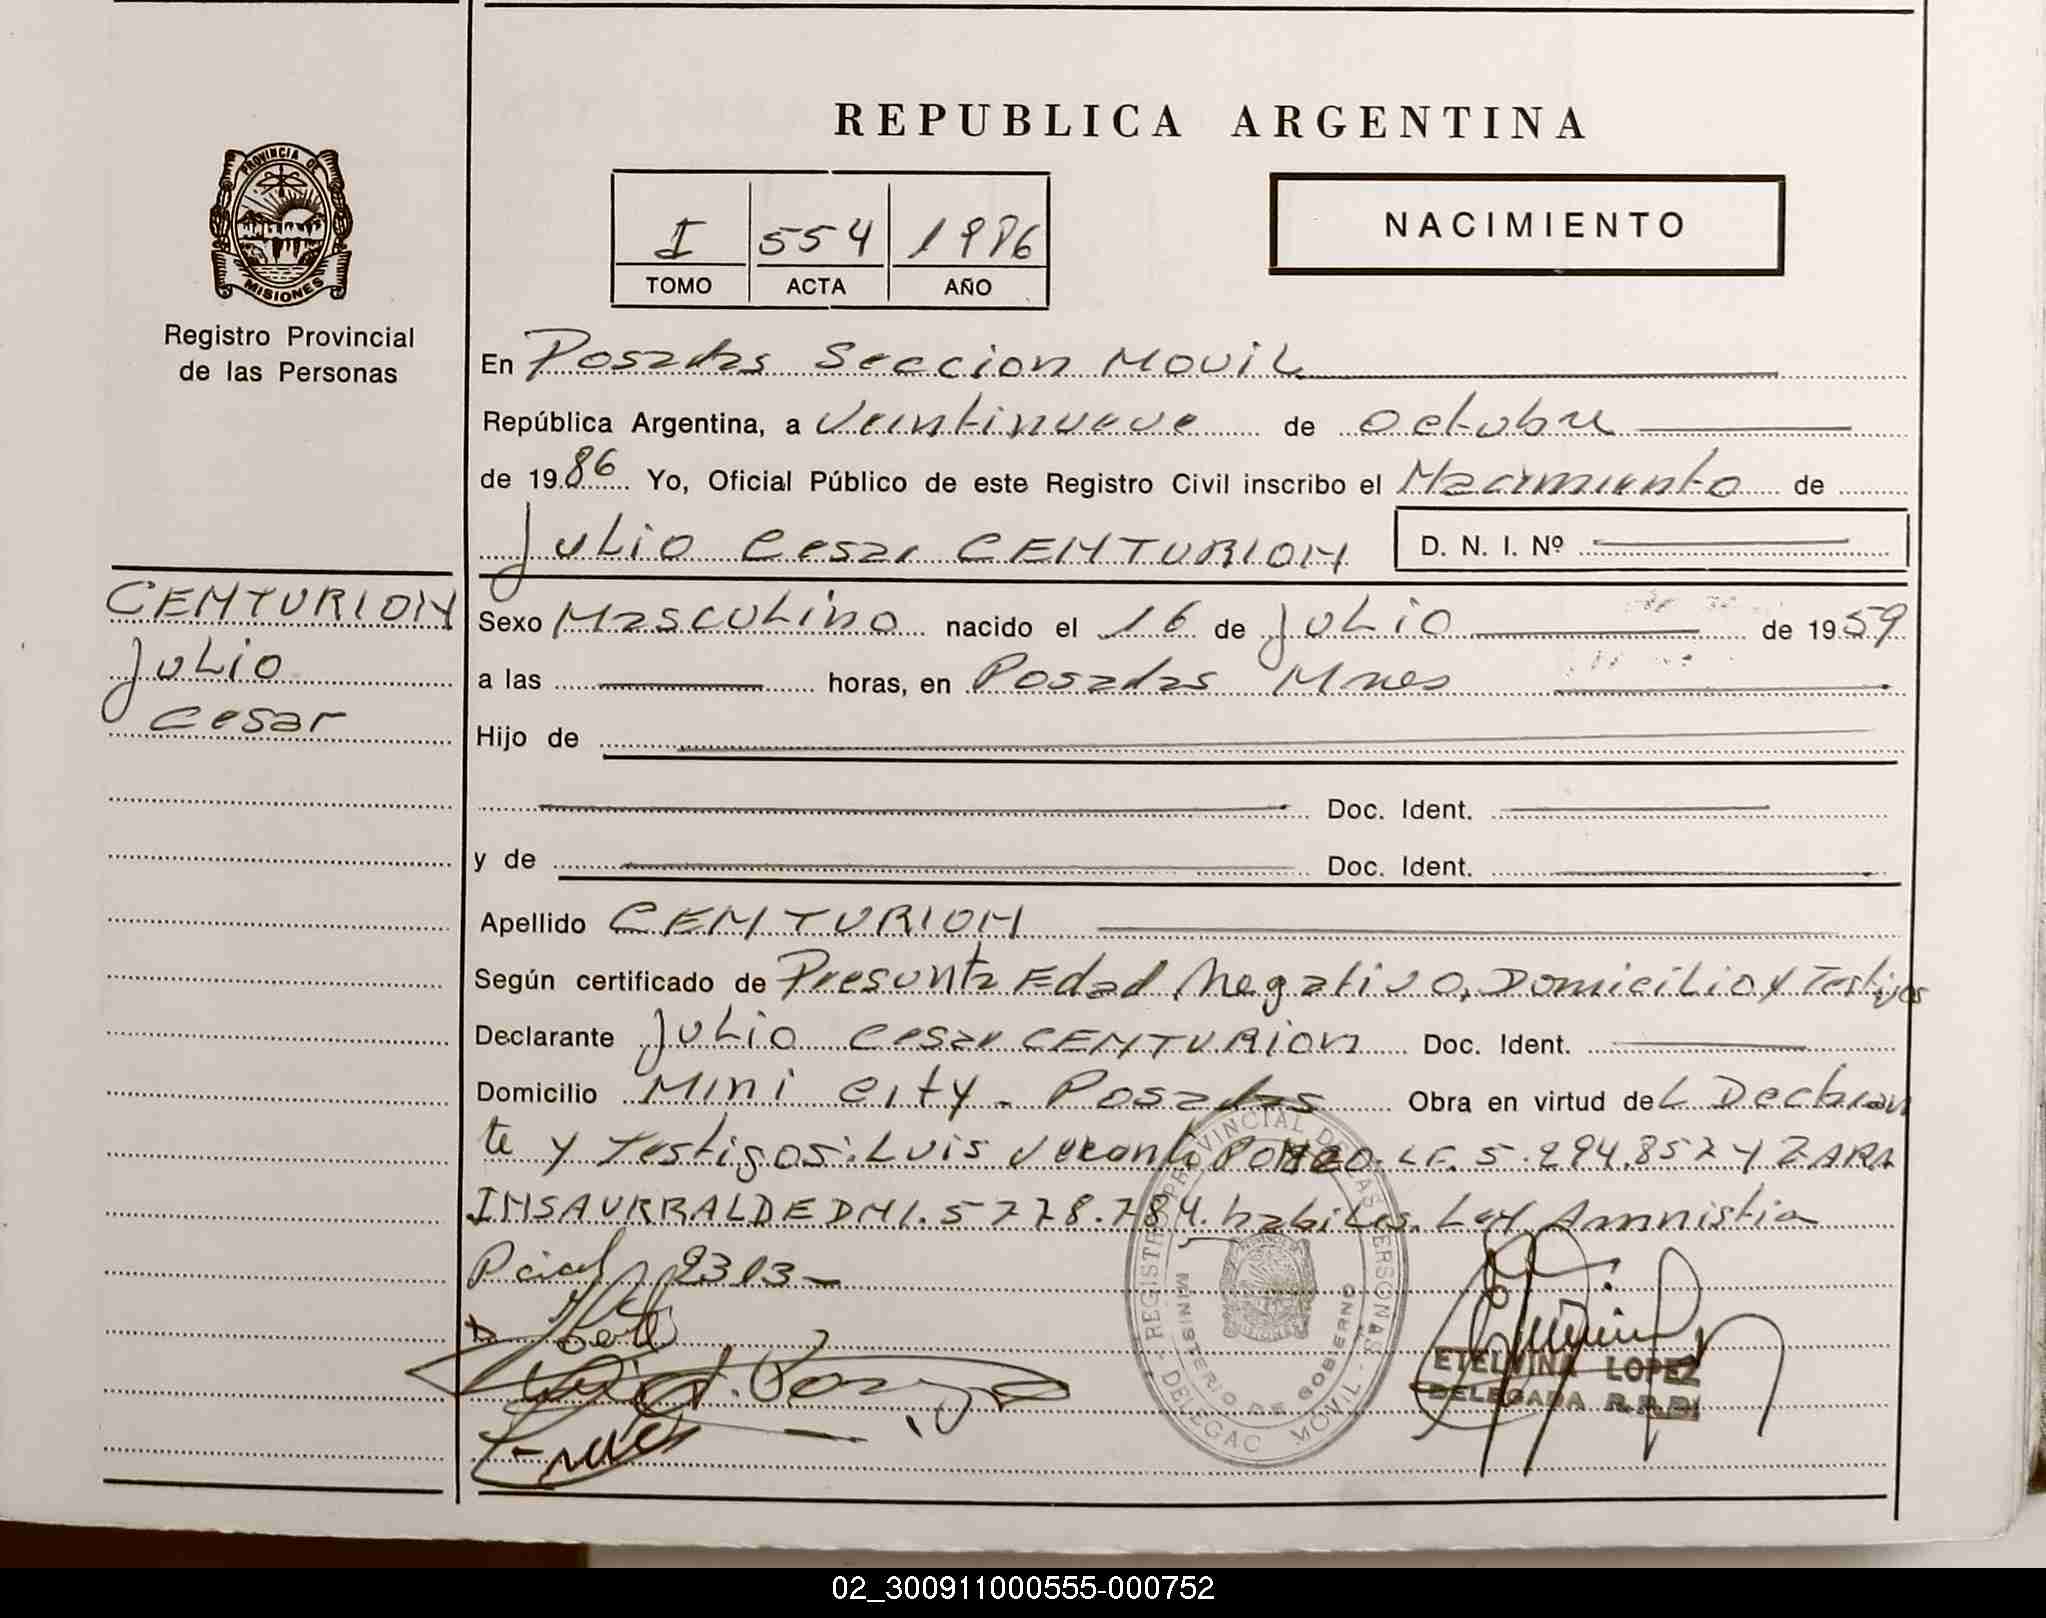 REPUBLICA ARGENTINA
PROVINCIA DE
MISIONES
Registro Provincial
de las Personas
I 554 1986
TOMO ACTA AÑO
NACIMIENTO
En Posadas Seccion Movil
República Argentina, a veintinueve de octubre
de 1986 Yo, Oficial Público de este Registro Civil inscribo el Nacimiento de
Julio Cesar CENTURION D. N. I. Nº
CENTURION
Julio
Cesar
Sexo Masculino nacido el 16 de Julio de 1959
a las horas, en Posadas Mnes
Hijo de
Doc. Ident.
y de Doc. Ident.
Apellido CENTURION
Según certificado de Presunta Edad, Negativo, Domicilio y Testigos
Declarante Julio Cesar CENTURION Doc. Ident.
Domicilio Mini City - Posadas Obra en virtud del Declaran
te y Testigos: Luis 5.294.852 y ZARA
INSAURRALDE DNI. 5778.784. habiles. Ley Amnistia
Pcial 2313-
REGISTRO PROVINCIAL DE LAS PERSONAS
MINISTERIO DE GOBIERNO
DELEGAC MOVIL
ETELVINA LOPEZ
DELEGADA R.P.P.
02_300911000555-000752